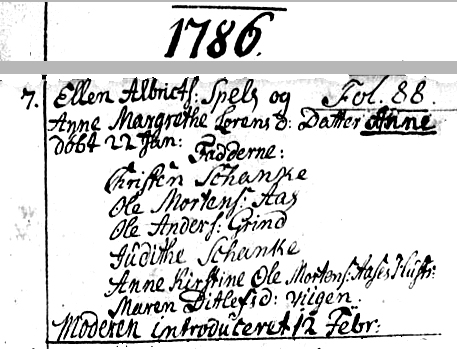 1786.
7. Ellen Albricts: Spels og Fol. 88.
Anne Margrethe Lorens d: Datter Anne
döbt 22 Jan:
Fadderne:
Christen Schanke
Ole Mortens: Aas
Ole Anders: Grind
Judithe Schanke
Anne Kirstine Ole Mortens: Aases Hustr:
Maren Ditlefs d: Viigen.
Moderen introduceret 12 Febr: